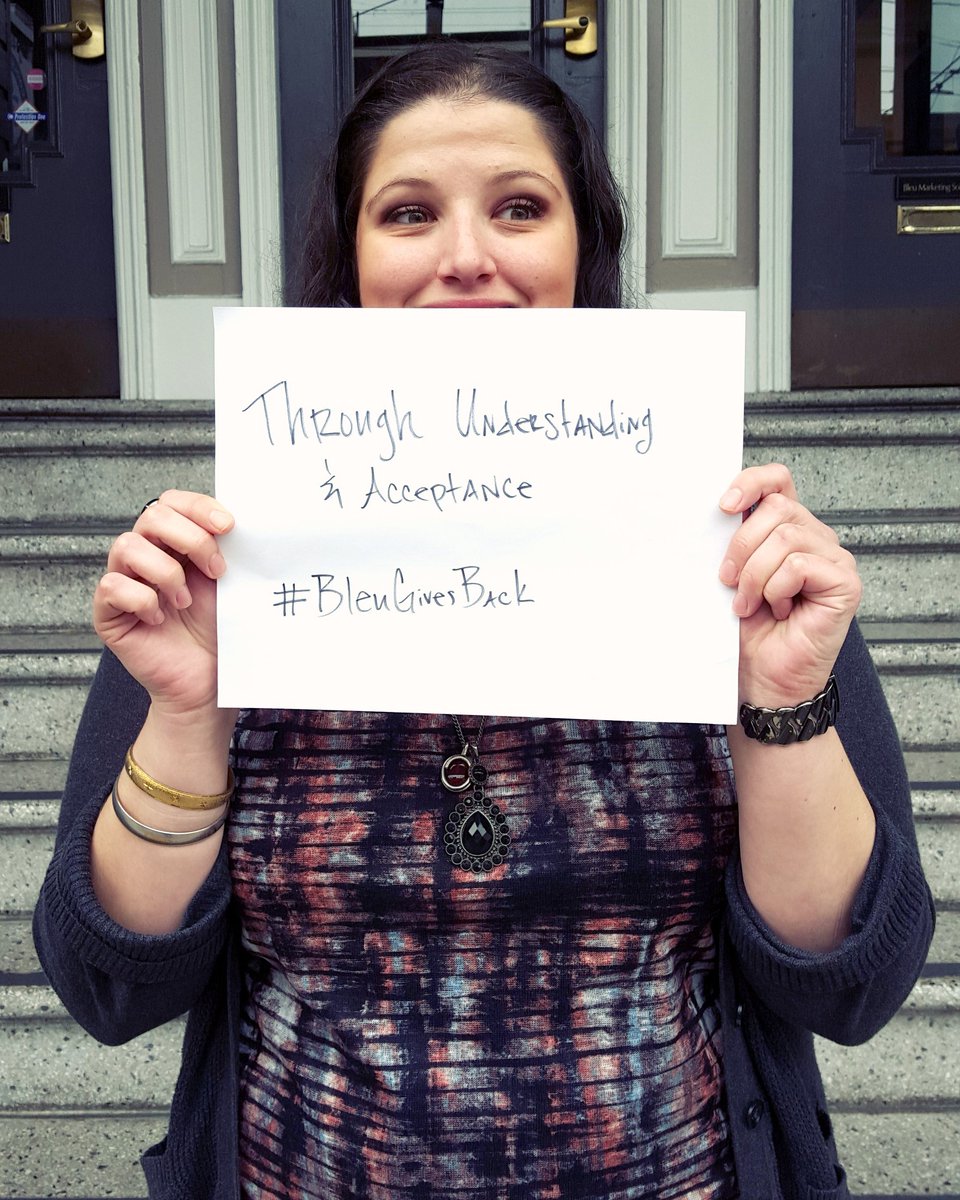 Through Understanding
& Acceptance
#BleuGivesBack
Protection One
Bleu Marketing So